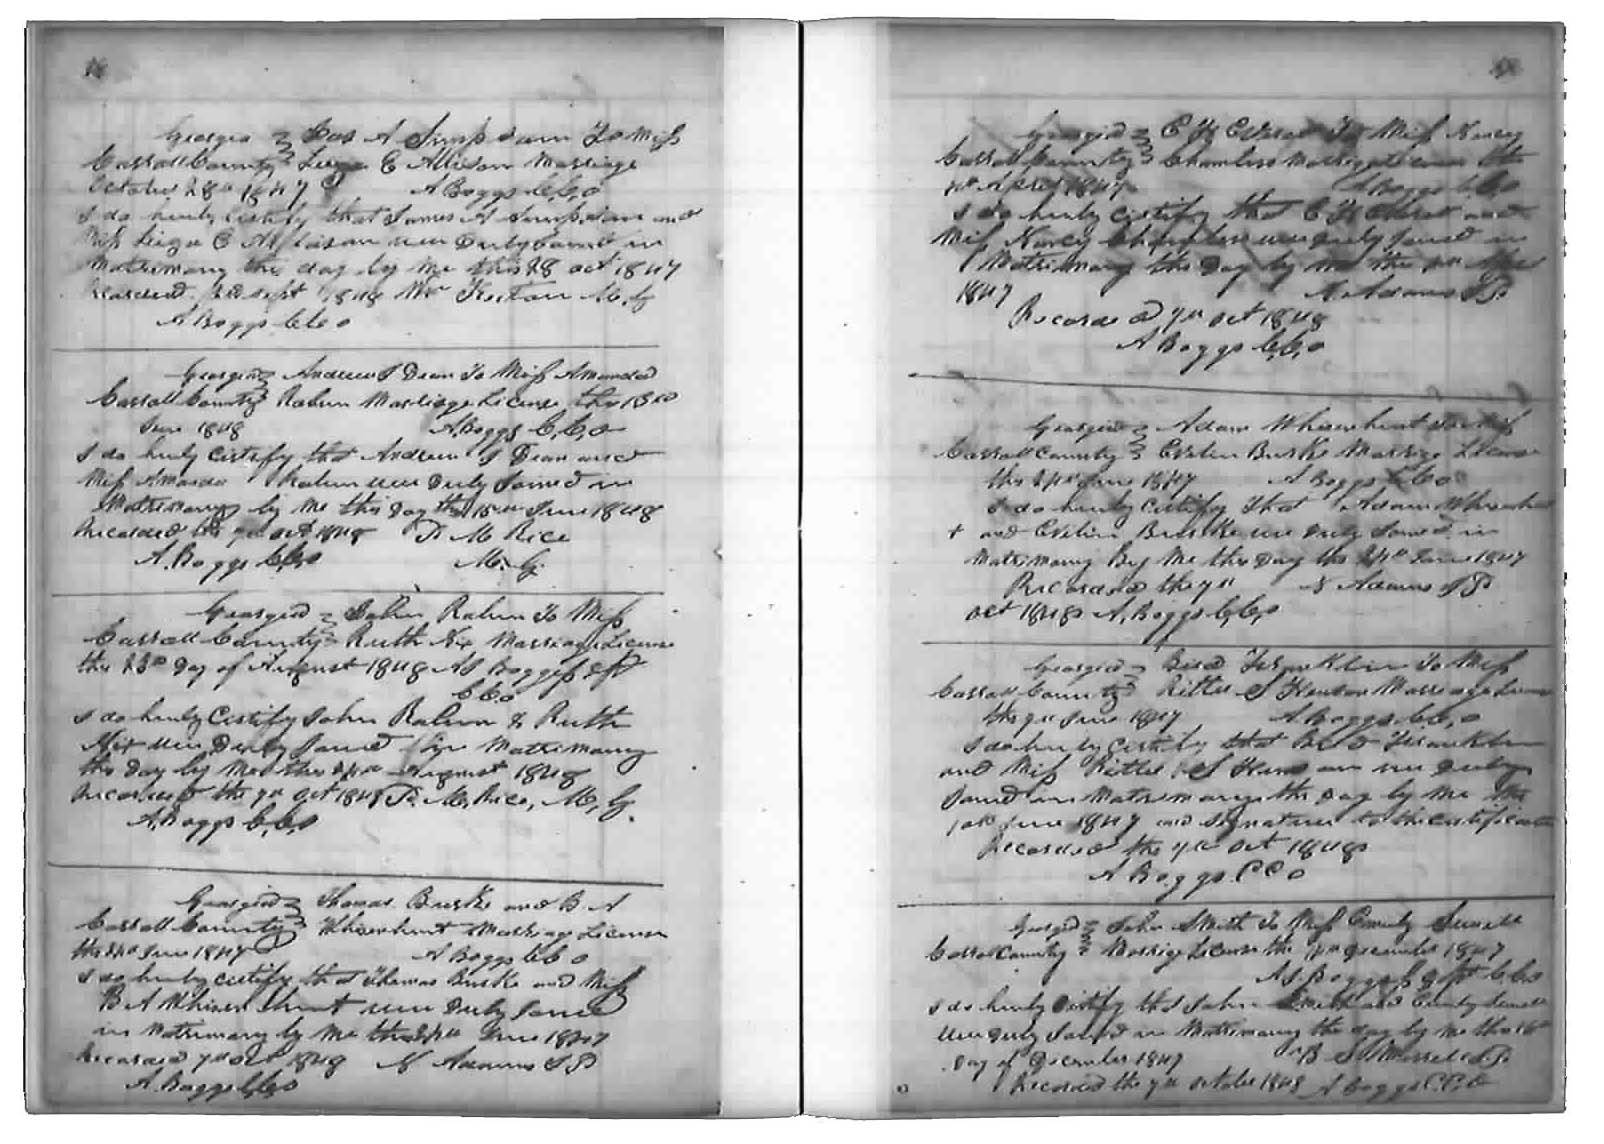 Georgia Jas A Simpson To Miss
Carroll County E Allison Marriage
October 28th 1847 A Boggs C,C,O
I do herby Certify that James A Simpson and
Miss E Allison were Duly Joined in
Matrimony this day by me this 28 Oct 1847
Recorded Sept 1848 Wm M,G
A Boggs C,C,O
Georgia Andrew J Dean To Miss Amanda
Carroll County Raburn Marriage License this
June 1848 A,Boggs C,C,O
I do herby Certify that Andrew J Dean and
Miss Amanda Raburn were Duly Joined in
Matrimony by me this Day the 15th June 1848
Recorded the 7th Oct 1848 M Rice
A,Boggs C,C,O M,G.
Georgia John Raburn To Miss
Carroll County Ruth Nix Marriage License
this 23rd Day of August 1848 A,S Boggess dpt
C C O
I do herby Certify John Raburn & Ruth
Nix were Duly Joined in Matrimony
this Day by me this 24th August 1848
Recorded the 7th Oct 1848 M, Rice, M,G.
A,Boggs C,C,O
Georgia Thomas Burke and B. A
Carroll County Whisenhunt Marriage License
this 24th June 1847 A Boggs C C O
I do herby certify that Thomas Burke and Miss
B A Whisenhunt were Duly Joined
in Matrimony by me this 24th June 1847
Recorded 7th Oct 1848 N Adams J P
A,Boggs C,C,O
Georgia Miss Nancy
Carroll County Chambless Marriage License the
April 1847 A Boggs C,C,O
I do herby Certify that and
Miss Nancy Chambless were Duly Joined in
Matrimony this Day by me the
1847 N. Adams J P
Recorded 7th Oct 1848
A Boggs C,C,O
Georgia Adam Whisenhunt To Miss
Carroll County Evelin Burke Marriage License
this 24th June 1847 A Boggs C C O
I do herby Certify that Adam Whisenhun
t and Evelin Burke were Duly Joined in
Matrimony By me this Day the 24th June 1847
Recorded the 7th N Adams J P
Oct 1848 A,Boggs C,C,O
Georgia Franklin To Miss
Carroll County S Marriage License
the 9th June 1847 A,Boggs C,C,O
I do herby certify that Franklin
and Miss S were Duly
Joined in Matrimony this Day by me the
10th June 1847 and signature to the certificate
Recorded the 7th Oct 1848
A Boggs C C O
Georgia John Smith To Miss Sewell
Carroll County Marriage License the December 1847
A,S, Boggess dpt C C O
I do herby Certify that John Smith and Sewell
were Duly Joined in Matrimony this day by me this
Day of December 1847 J P
Recorded the 7th October 1848 A Boggs C C O